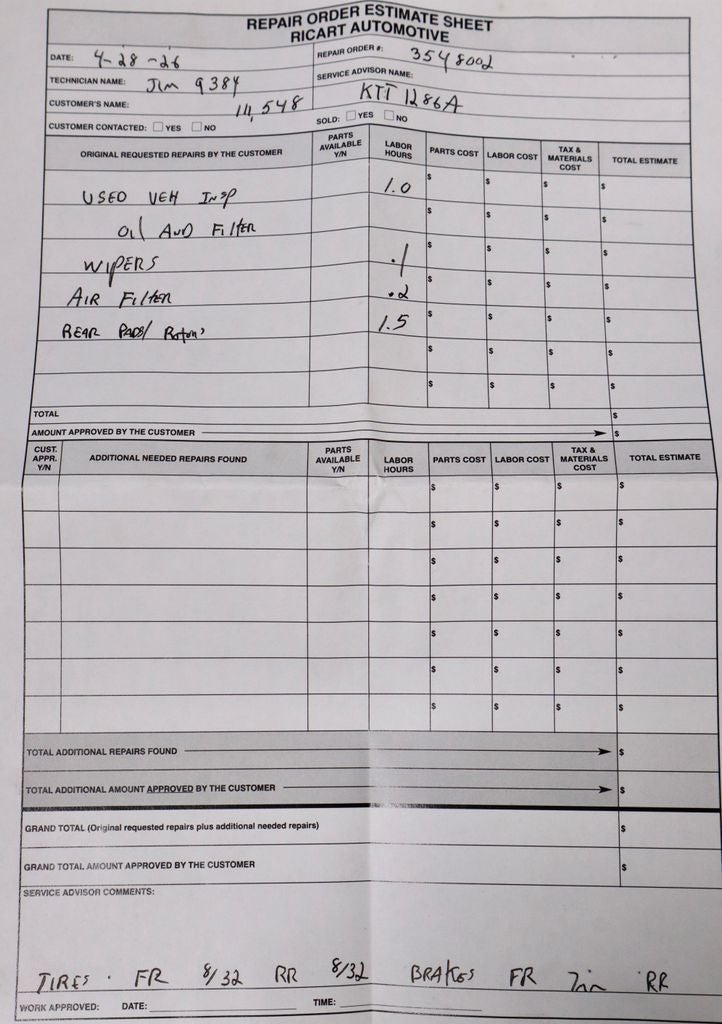 REPAIR ORDER ESTIMATE SHEET
RICART AUTOMOTIVE
DATE: 4-28-26 REPAIR ORDER #: 3548002
TECHNICIAN NAME: Jim 9384 SERVICE ADVISOR NAME:
CUSTOMER'S NAME: 14,548 KTT 1286A
CUSTOMER CONTACTED: YES NO SOLD: YES NO
ORIGINAL REQUESTED REPAIRS BY THE CUSTOMER PARTS AVAILABLE Y/N LABOR HOURS PARTS COST LABOR COST TAX & MATERIALS COST TOTAL ESTIMATE
USED VEH INSP 1.0 $ $ $ $
OIL AND FILTER $ $ $ $
WIPERS .1 $ $ $ $
AIR FILTER .2 $ $ $ $
REAR PADS/ Rotors 1.5 $ $ $ $
$ $ $ $
$ $ $ $
TOTAL $
AMOUNT APPROVED BY THE CUSTOMER $
CUST. APPR. Y/N ADDITIONAL NEEDED REPAIRS FOUND PARTS AVAILABLE Y/N LABOR HOURS PARTS COST LABOR COST TAX & MATERIALS COST TOTAL ESTIMATE
$ $ $ $
$ $ $ $
$ $ $ $
$ $ $ $
$ $ $ $
$ $ $ $
$ $ $ $
TOTAL ADDITIONAL REPAIRS FOUND $
TOTAL ADDITIONAL AMOUNT APPROVED BY THE CUSTOMER $
GRAND TOTAL (Original requested repairs plus additional needed repairs) $
GRAND TOTAL AMOUNT APPROVED BY THE CUSTOMER $
SERVICE ADVISOR COMMENTS:
TIRES FR 8/32 RR 8/32 BRAKES FR 7mm RR
WORK APPROVED: DATE: TIME: